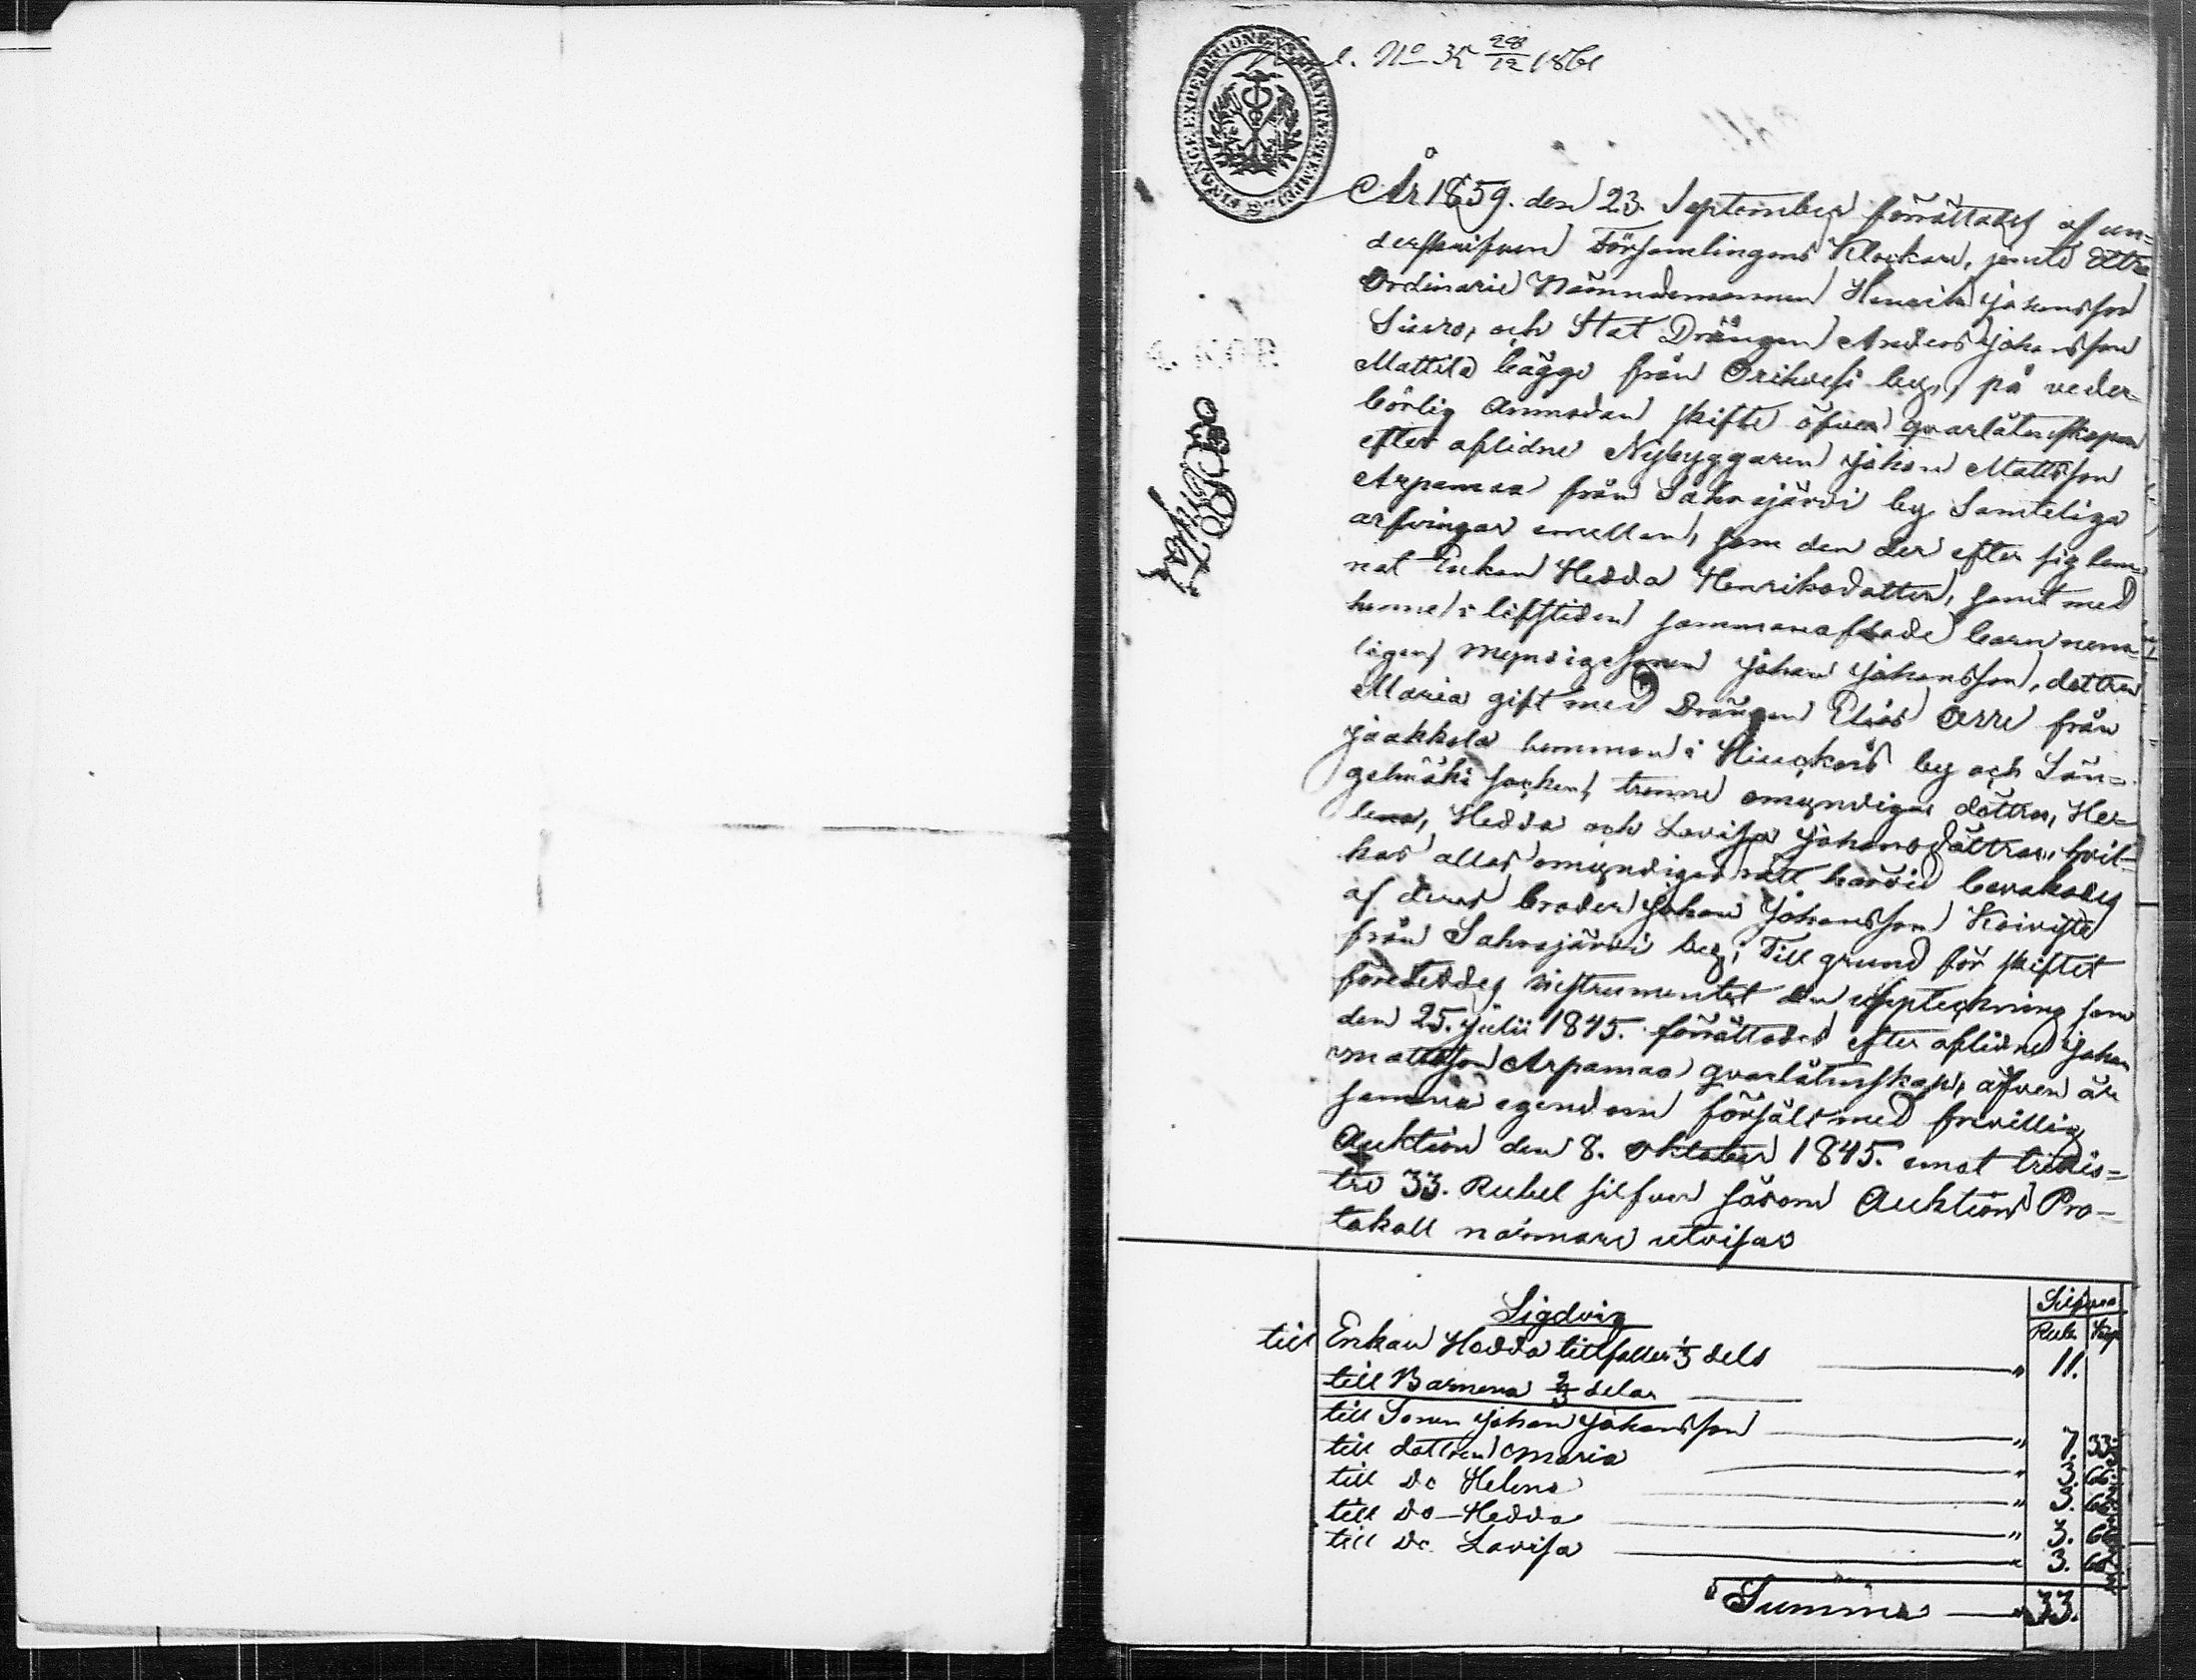 No 35 28/12 1861
FINANCE EXPEDITIONENS CHARTÆ STEMPEL
År 1859. den 23. September förrättades af un=
derskrifven Församlingens Klockare, jemte Extra
Ordinarie Nämndemannen Henrik Johansson
Siuro, och Stat Drängen Anders Johansson
Mattila bägge från Orihvesi by, på veder=
börlig anmodan skifte öfver qvarlåtenskapen
efter aflidne Nybyggaren Johan Mattsson
Arpamaa från Sahrajärvi by Samteliga
arfvingar emellan, som den der efter sig lem=
nat Enkan Hedda Henriksdotter, samt med
henne i lifstiden sammanaflade barn nem=
ligen myndige sonen Johan Johansson, dottren
Maria gift med Drängen Elias Orre från
Jaakkola hemman i Hiuckois by och Län=
gelmäki socken, trenne omyndiga döttrar, He=
lena, Hedda och Lovisa Johansdöttrar, hvil=
kas allas omyndigas rätt härvid bevakades
af deras broder Johan Johansson Koivisto
från Sahrajärvi by; Till grund för skiftet
företeddes instrumentet den uppteckning som
den 25. Julii 1845. förrättades efter aflidne Johan
Mattsson Arpamaa qvarlåtenskap, äfven är
samma egendom försåld med frivillig
Auktion den 8. Oktober 1845. emot trettio=
tre 33. Rubel silfver såsom Auktions Pro=
tokoll närmare utvisar
Silfver
Rub. Kop
till Enkan Hedda tillfaller 1/3 dels " 11.
till Barnena 2/3 delar
till Sonen Johan Johansson " 7. 33.
till dottren Maria " 3. 66.
till Do Helena " 3. 66.
till Do Hedda " 3. 66
till Do Lovisa " 3. 66
Summa " 33.